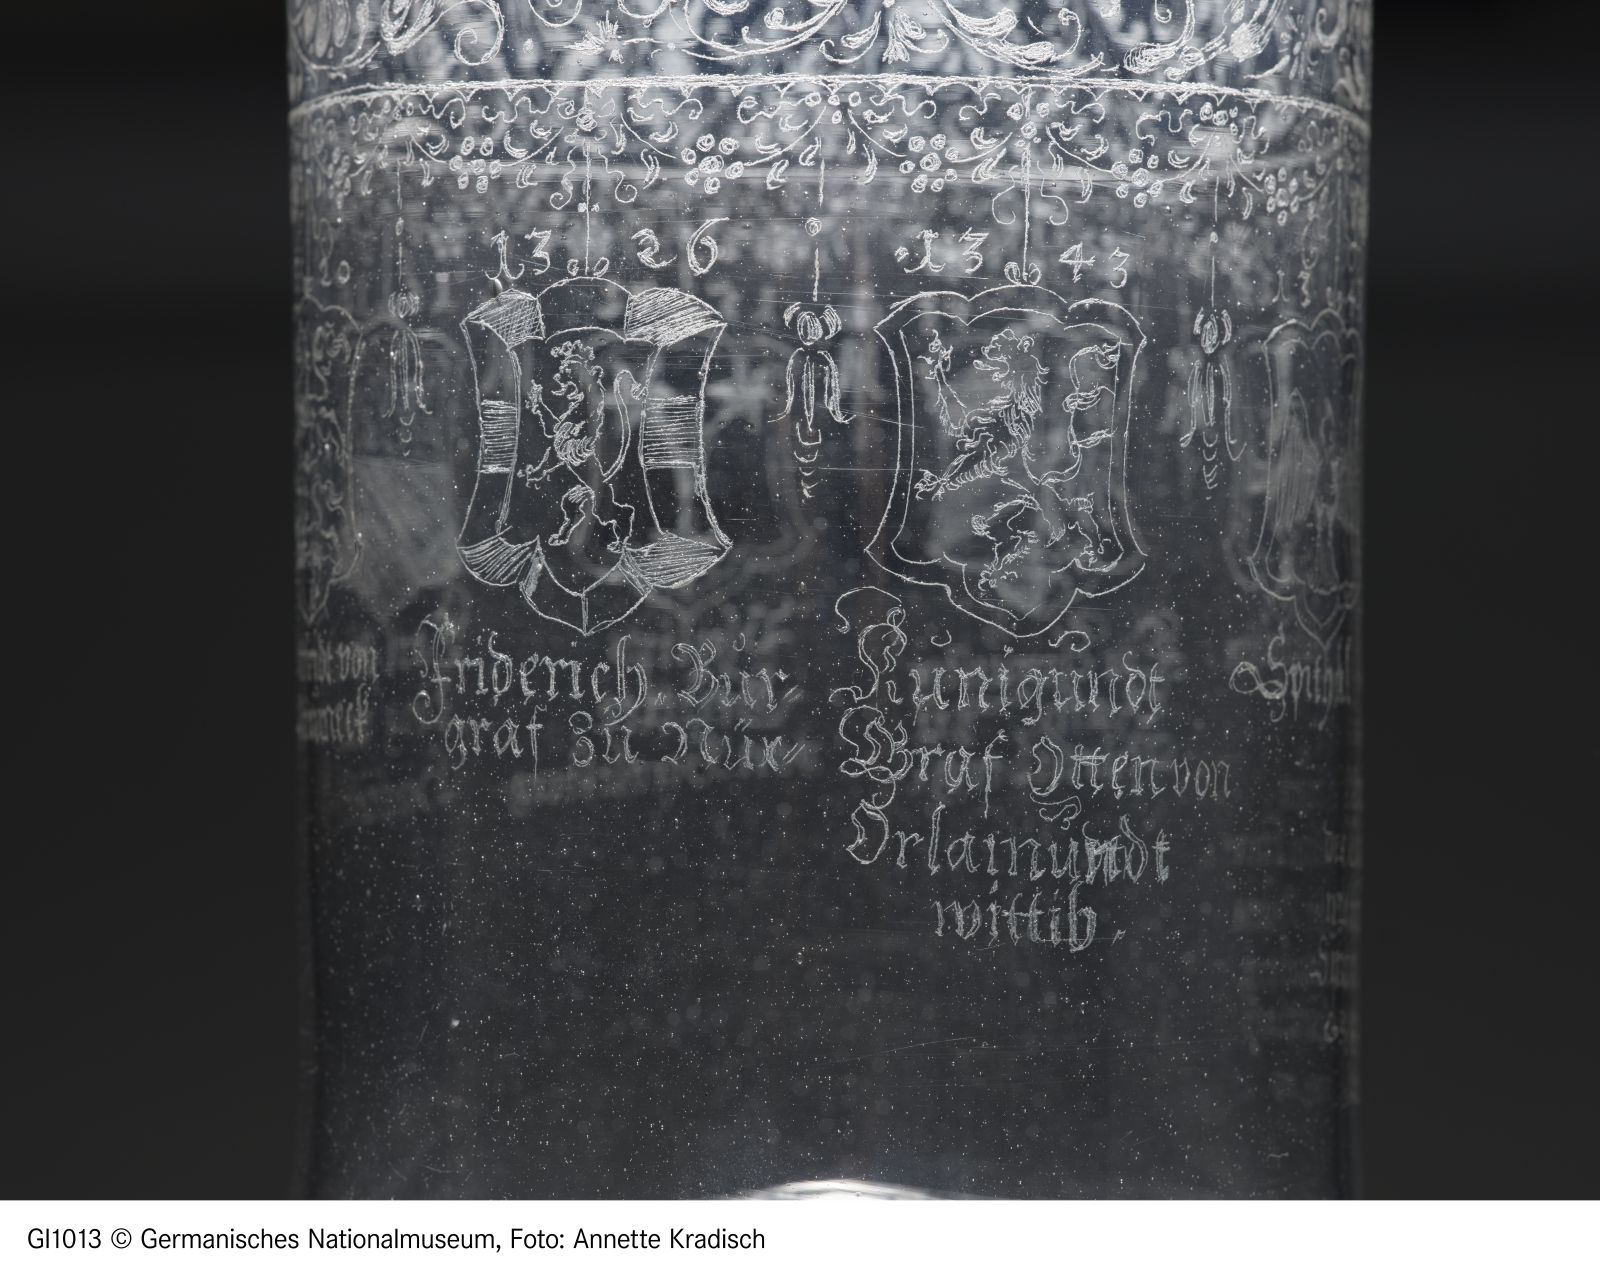 1326
Friderich Bur-
graf zu Nür-
1343
Kunigundt
Graf Otten von
Orlamundt
wittib.
von
Spith
GI1013 © Germanisches Nationalmuseum, Foto: Annette Kradisch